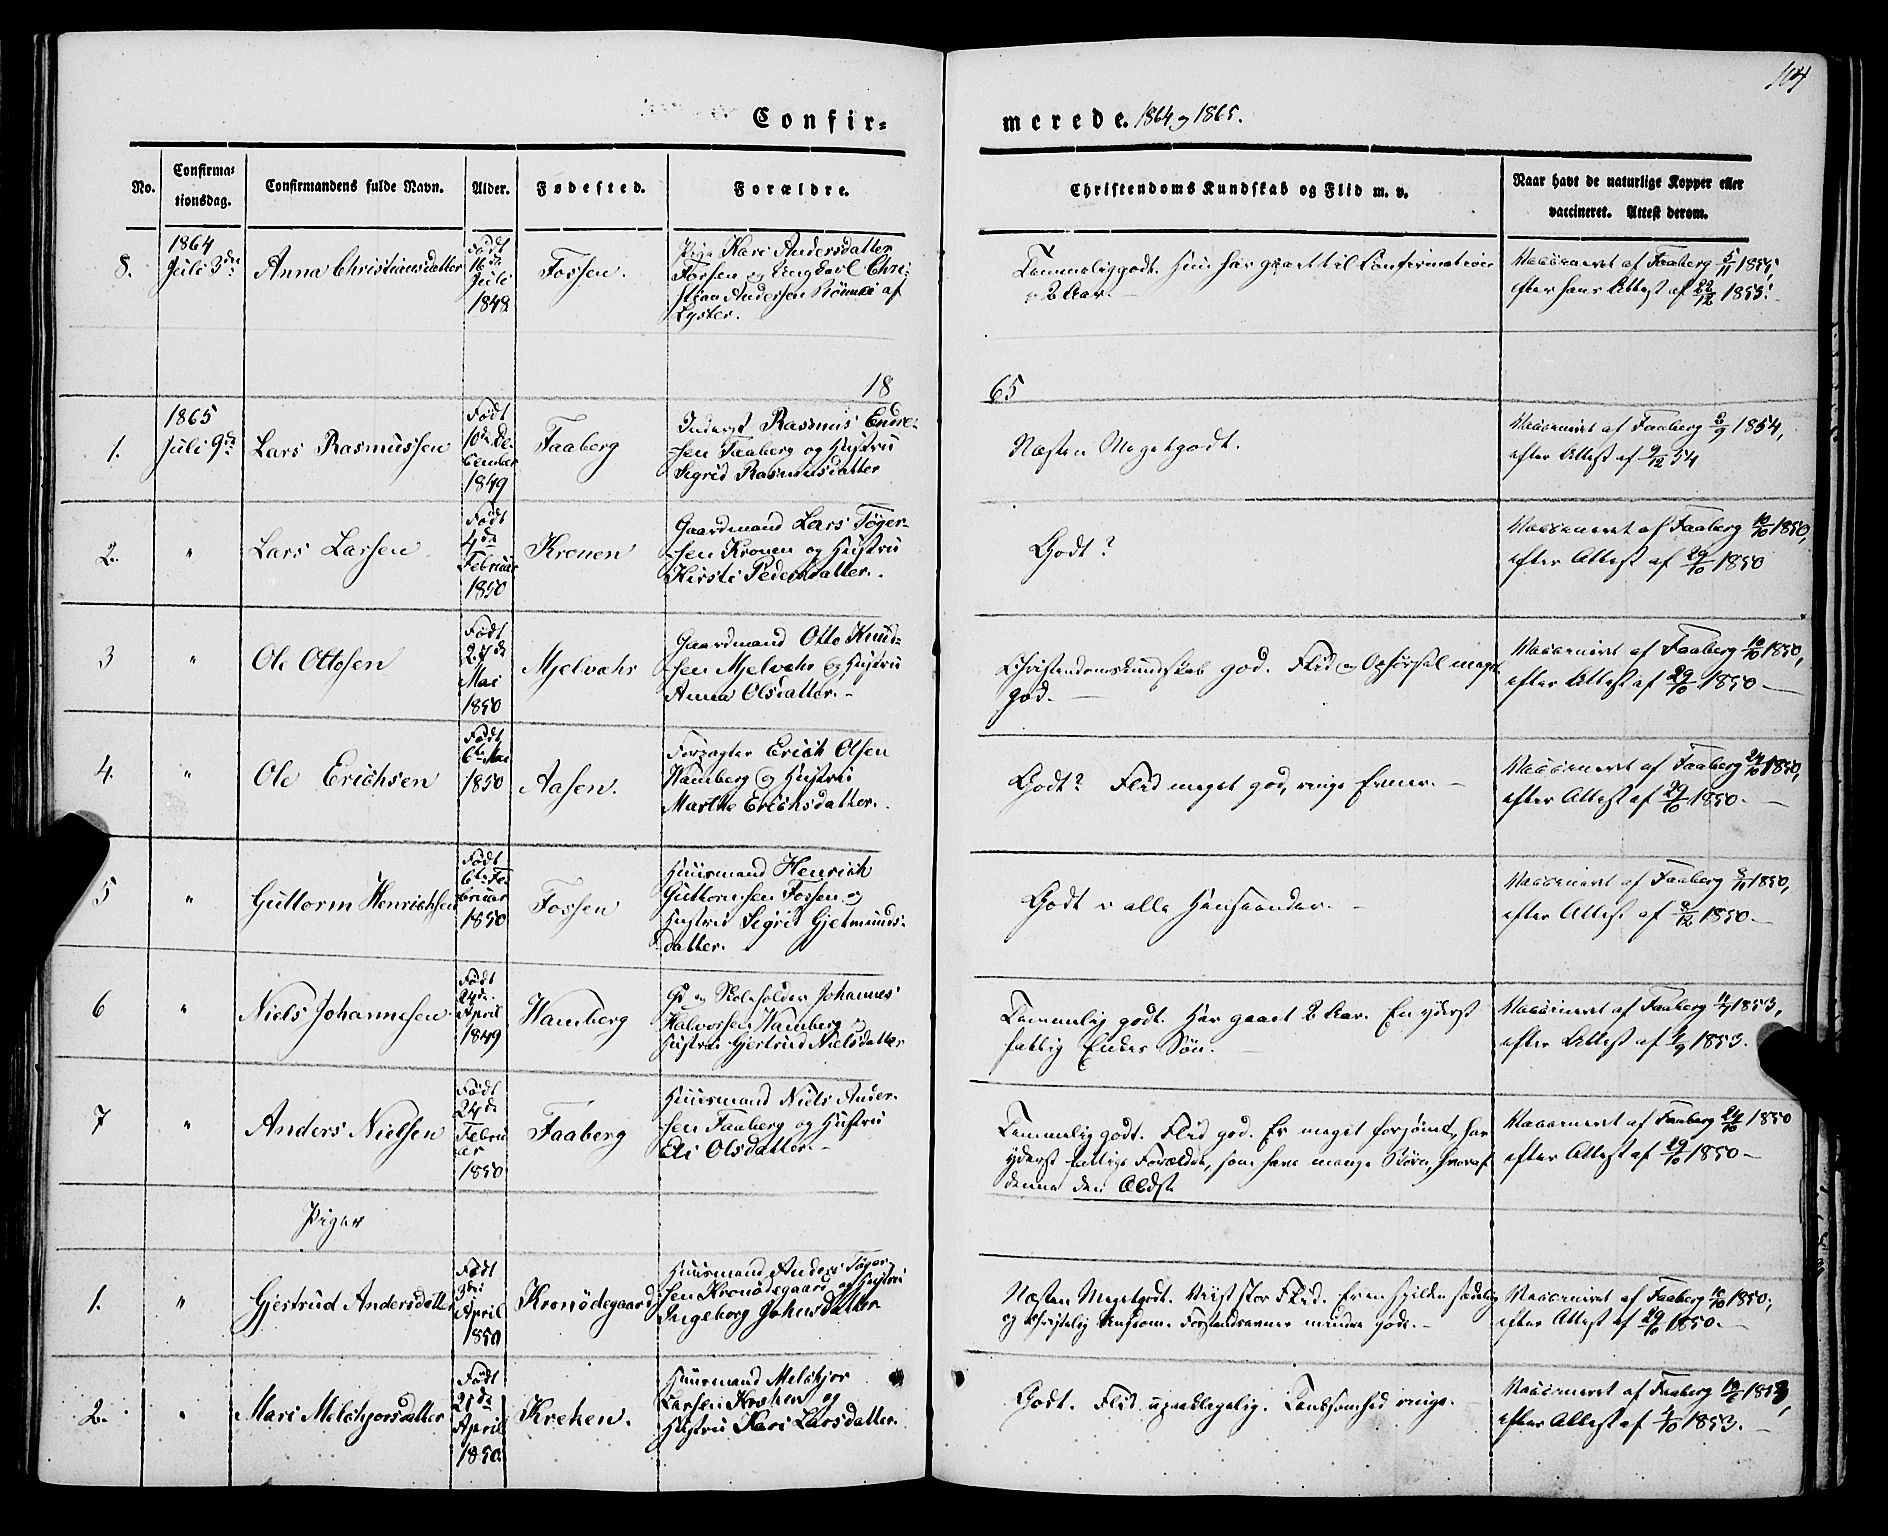 104
Confir-
merede. 1864 og 1865.
No.
Confirma-
tionsdag.
Confirmandens fulde Navn.
Alder.
Fødested.
Forældre.
Christendoms Kundskab og Flid m. v.
Naar havt de naturlige Kopper eller
vaccineret. Attest derom.
8.
1864
Juli 3die
Anna Christiansdatter
Født
16de
Juli
1848
Fossen.
Pige Kari Andersdatter
Fossen og Ungkarl Chri-
stian Andersen Rønnei af
Lyster.
Temmelig godt. Hun har gaaet til Confirmation
i 2 Aar.
Vaccineret af Faaberg
efter hans Attest af 22/12 1855.
18
65
1.
1865
Juli 9de
Lars Rasmussen
Født
10de De-
cember
1849
Faaberg
Inderst Rasmus Endre-
sen Faaberg og Hustru
Segrid Rasmusdatter
Næsten Megetgodt.
Vaccineret af Faaberg 8/9 1854,
efter Attest af 9/12 54
2.
"
Lars Larsen
Født
4de
Februar
1850
Kronen
Gaardmand Lars Tøger-
sen Kronen og Hustru
Kirsti Pedersdatter.
Godt?
Vaccineret af Faaberg 10/10 1850,
efter Attest af 29/10 1850
3
"
Ole Ottosen
Født
27de
Mai
1850
Mjelvahr
Gaardmand Otto Knud-
sen Mjelvahr og Hustru
Anna Olsdatter. -
Christendomskundskab god. Flid og Opførsel meget
god.
Vaccineret af Faaberg 10/10 1850,
efter Attest af 29/10 1850. -
4.
"
Ole Erichsen
Født
6te Mai
1850
Aasen.
Forpagter Erich Olsen
Wamberg og Hustru
Marthe Erichsdatter.
Godt? Flid meget god, ringe Evner. -
Vaccineret af Faaberg 24/10 1850,
efter Attest af 29/10 1850. -
5
"
Guttorm Henrichsen
Født
6te Fe-
bruar
1850
Fossen
Huusmand Henrich
Guttormsen Fossen og
Hustru Segrid Gjetmunds-
datter.
Godt i alle Henseender. -
Vaccineret af Faaberg 8/11 1850,
efter Attest af 8/12 1850. -
6
"
Niels Johannesen
Født
24de
April
1849
Wamberg
Gd og Skoleholder Johannes
Halvorsen Wamberg og
Hustru Gjertrud Nielsdatter
Temmelig godt. Har gaaet 2 Aar. En yderst
fattig Enkes Søn.
Vaccineret af Faaberg 1853,
efter Attest af 1853.
7
"
Anders Nielsen
Født
24de
Febru
ar
1850
Faaberg
Huusmand Niels Ander-
sen Faaberg og Hustru
Eli Olsdatter. -
Temmelig godt. Flid god. Er meget forsømt, har
yderst fattige Forældre, som have mange Børn, hvoraf
denne den Ældste
Vaccineret af Faaberg 24/10 1850
efter Attest af 29/10 1850 -
Piger
1.
"
Gjertrud Andersdatter
Født
3die
April
1850
Kronødegaard
Huusmand Anders Tøger-
sen Kronødegaard og Hustru
Ingeborg Johnsdatter
Næsten Megetgodt. Viist stor Flid. Er en stille sædelig
og christelig Ungdom. Forstandsevner mindre gode. -
Vaccineret af Faaberg 10/10 1850,
efter Attest af 29/10 1850. -
2.
"
Mari Melchjorsdatter
Født
21de
April
1850.
Kreken.
Huusmand Melchjor
Larsen Kreken og
Hustru Kari Larsdatter.
Godt. Flid upaaklagelig. Tænksomhed ringe.
Vaccineret af Faaberg 1853,
efter Attest af 1853. -